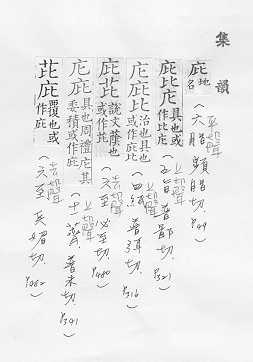 集韻
庇 地名
(六脂 頻脂切 P49)
平聲
庀比庇 具也或作比庇
(五旨 普鄙切 P321)
上聲
庀庇 治也具也或作庇
(四紙 普弭切 P316)
上聲
庇芘 說文蔭也或作芘
(六至 必至切 P480)
去聲
庀庇 具也周禮庀其委積或作庇
(十一薺 普米切 P341)
上聲
芘庇 覆也或作庇
(六至 兵媚切 P482)
去聲